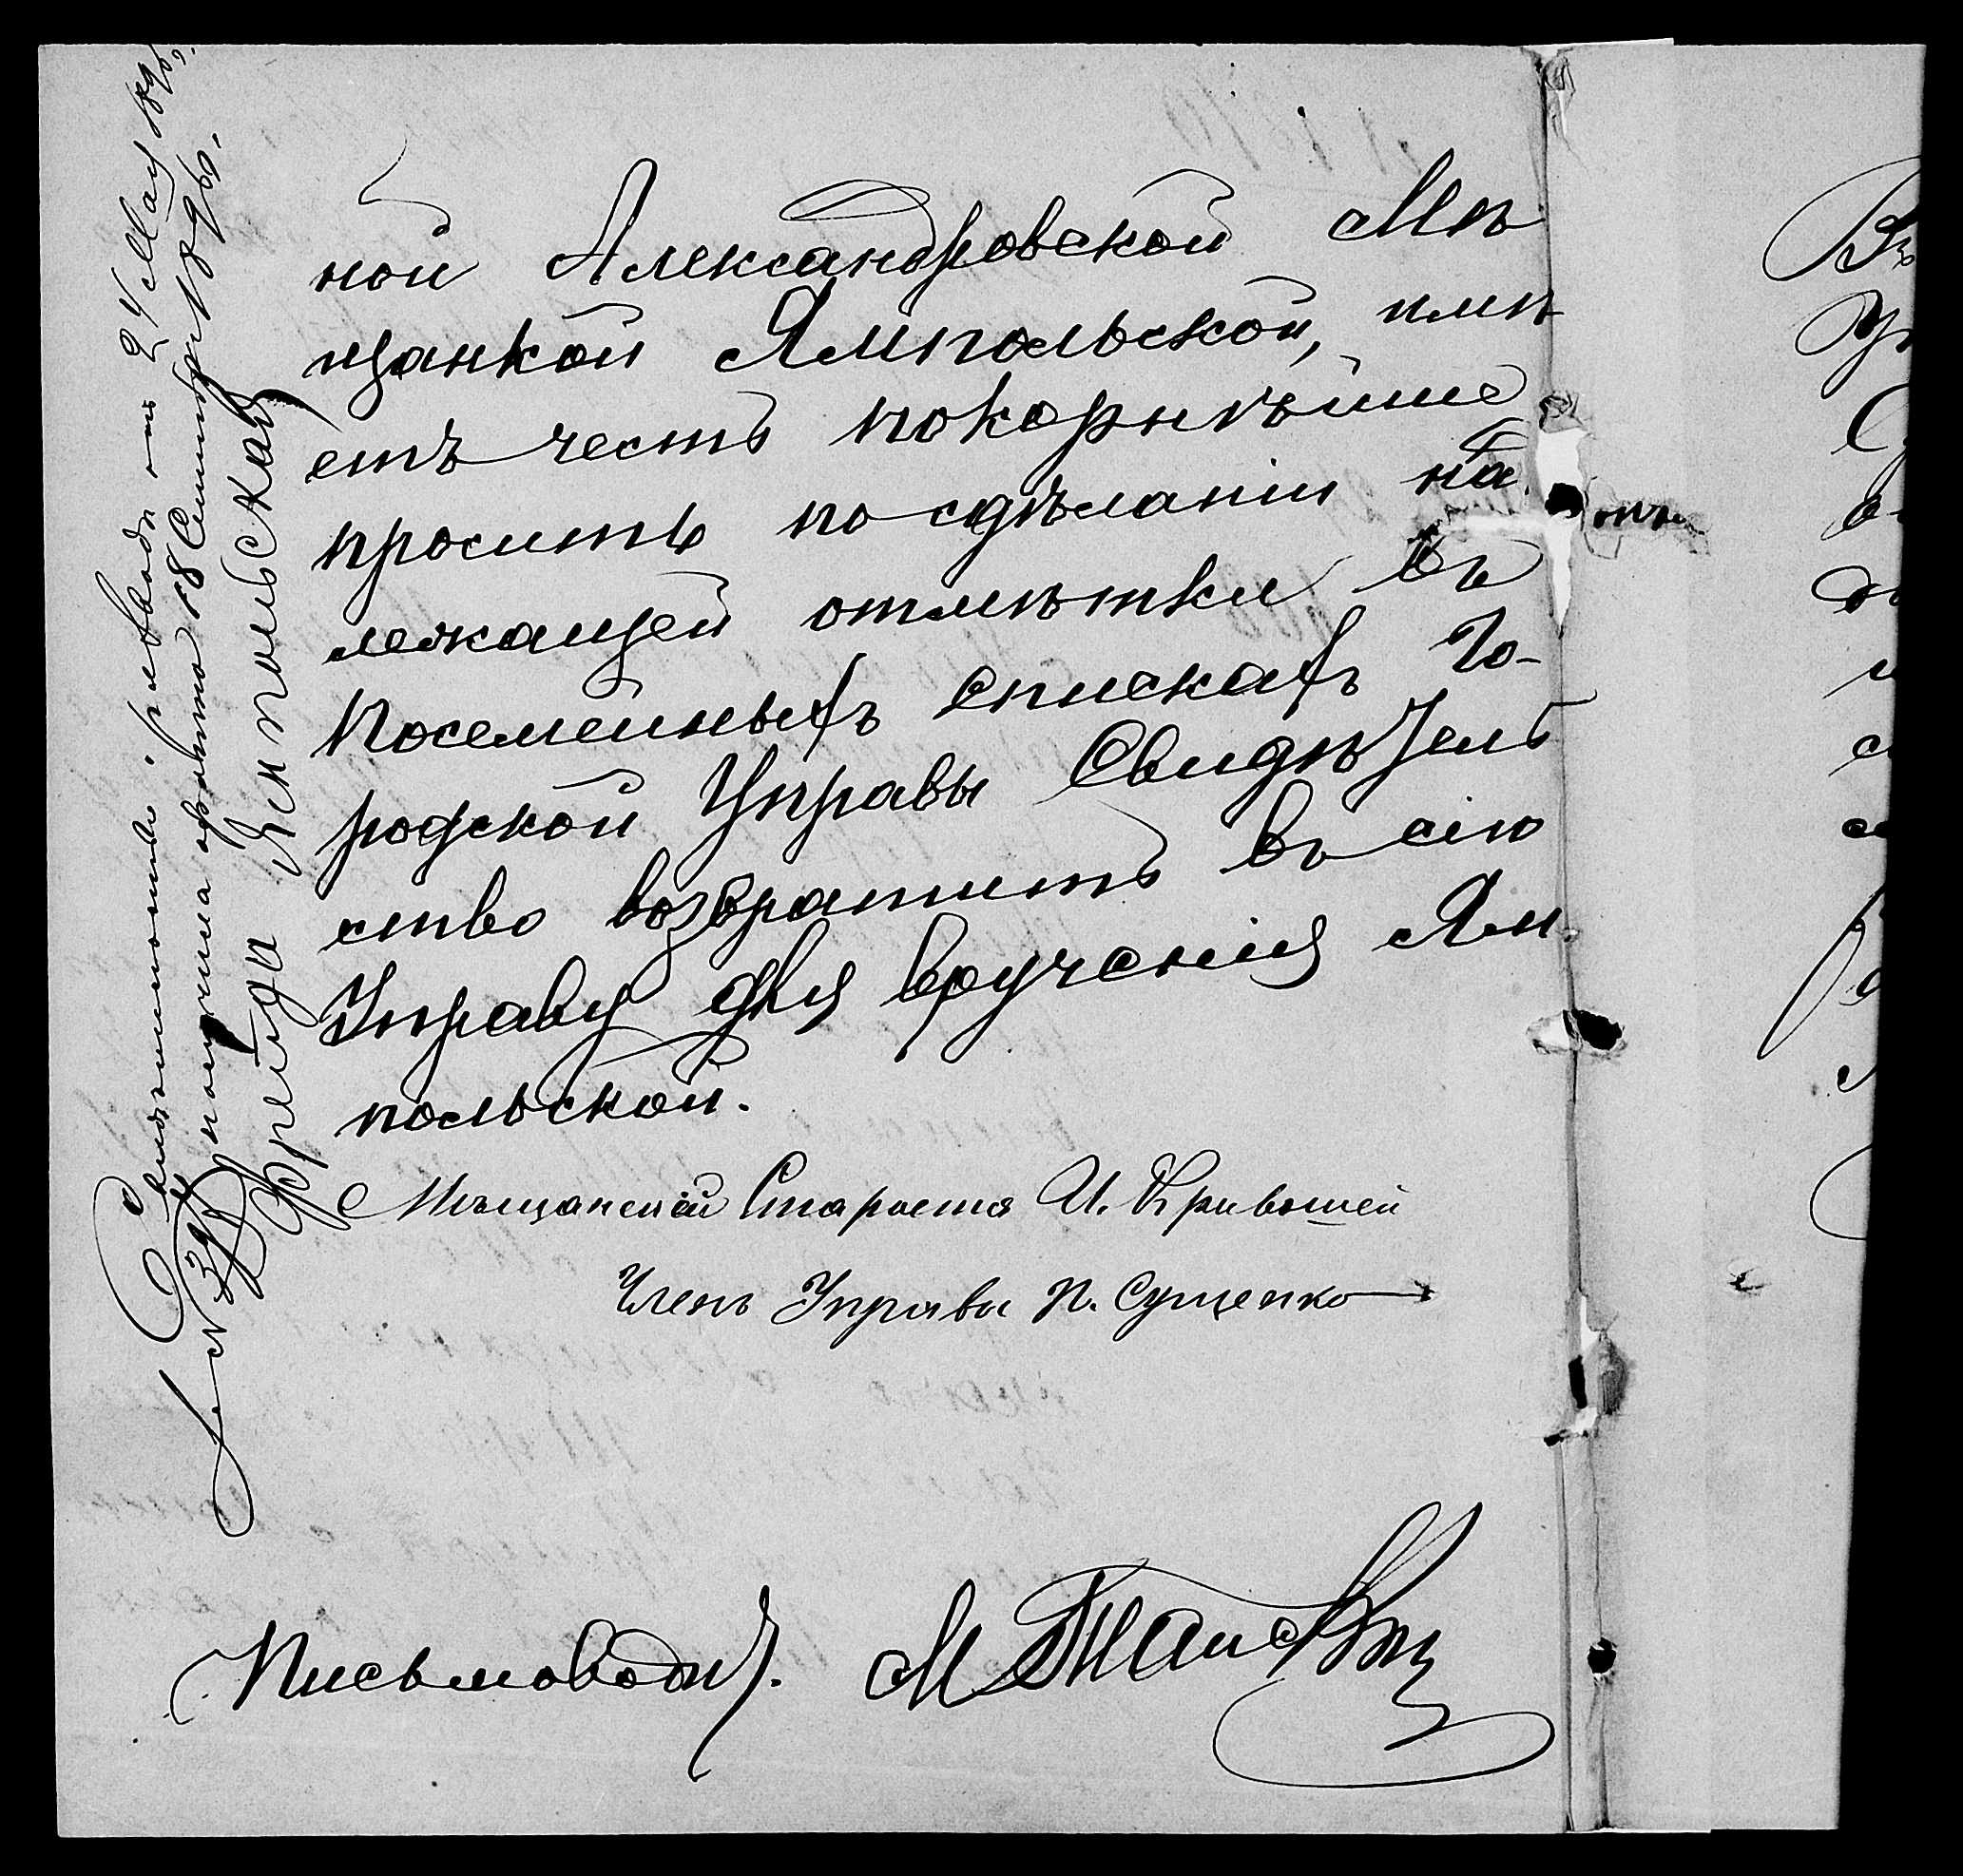 ной Александровской Мѣ
щанкой Ямпольской, имѣ
етъ честь покорнѣйше
просить по сдѣланіи на
лежащей отмѣтки въ
посемейныхъ спискахъ Го-
родской Управы Свидѣтель
ство возвратить въ сію
Управу для врученія Ям-
польской.
Мѣщанскій Староста И.
Членъ Управы П. Сущенко
Письмоводит.
Свидѣтельство о рѣ отъ 24 Мая 189
за № 39 получила обратно 18 Сентября 1896.
Фрейда Ямпольская